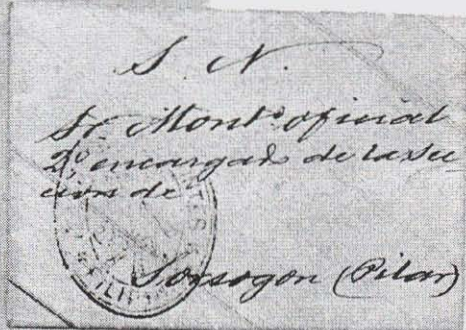 S. N.
Sr. Mont.º oficial
2º, encargado de la Sec
cion de
Sorsogon (Pilar)